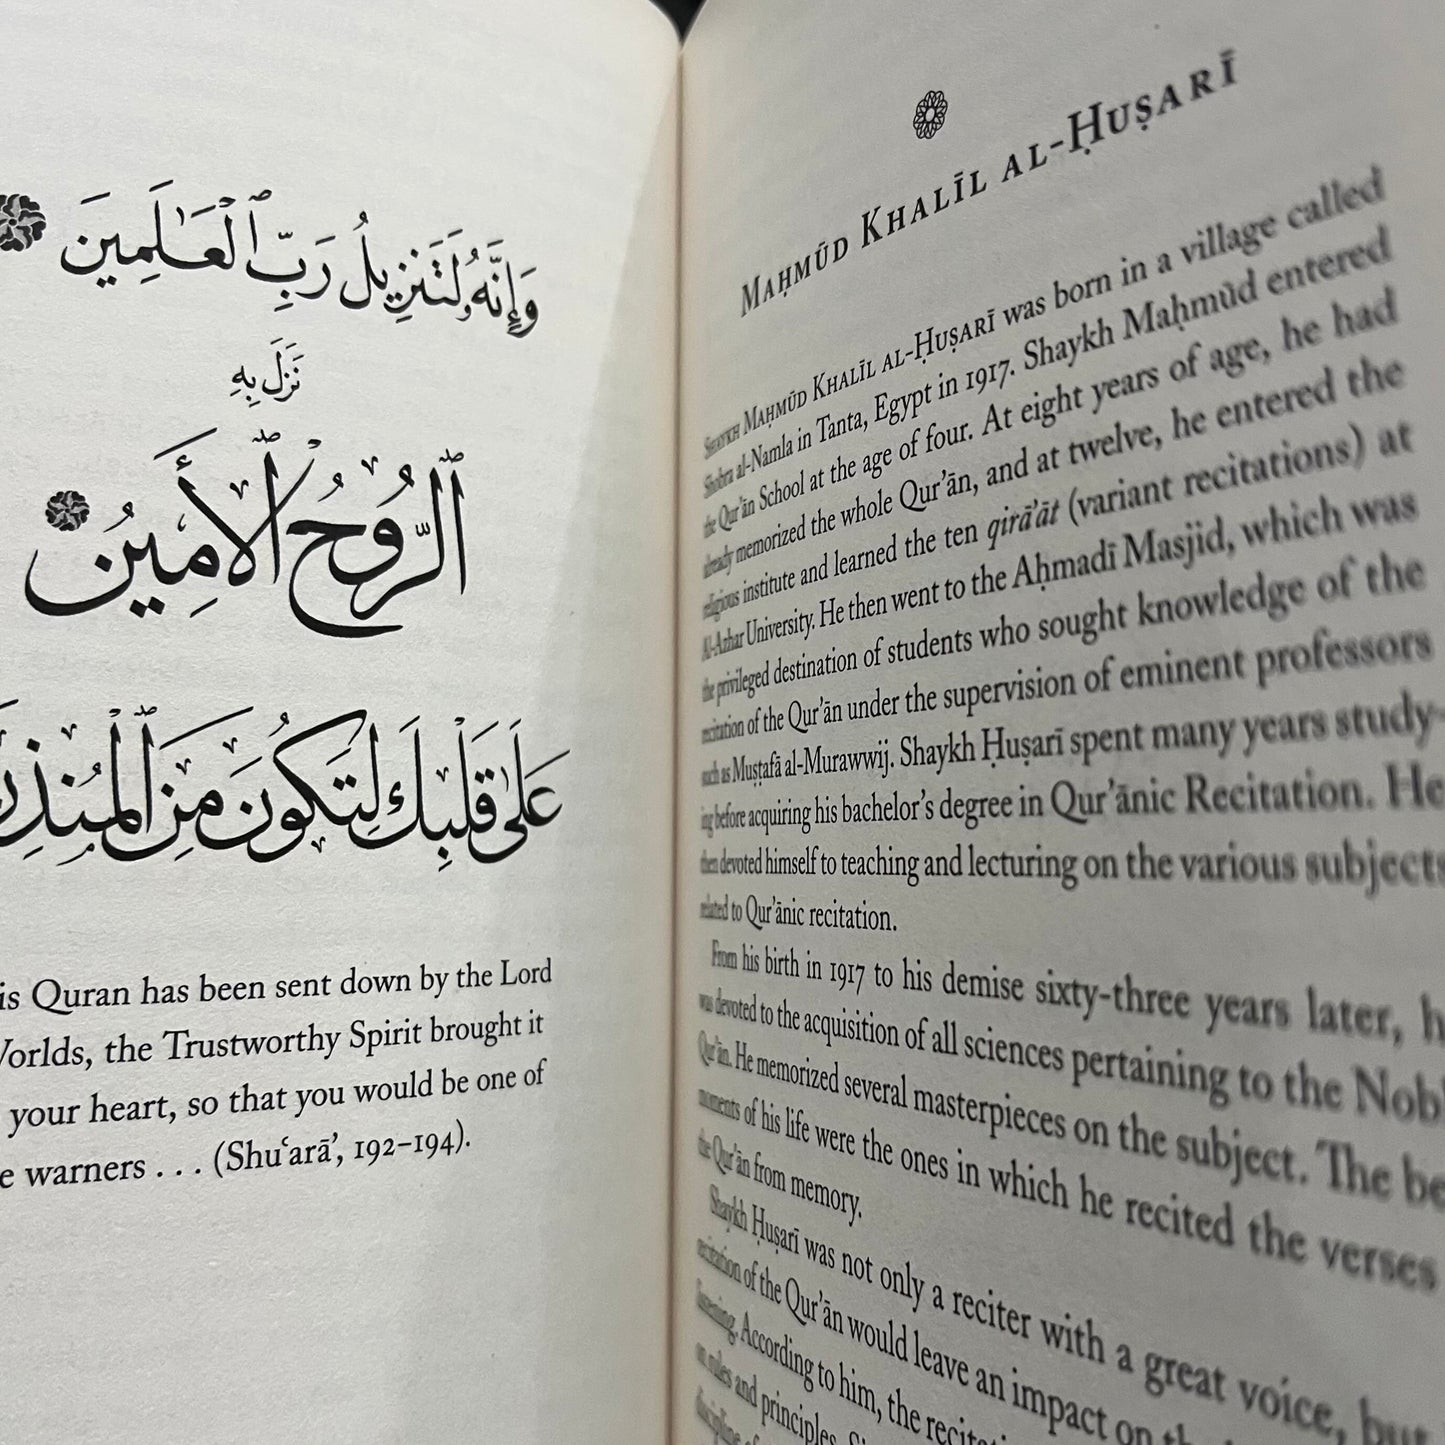 وَإِنَّهُۥ لَتَنزِيلُ رَبِّ ٱلْعَـٰلَمِينَ
نَزَلَ بِهِ
ٱلرُّوحُ ٱلْأَمِينُ
عَلَىٰ قَلْبِكَ لِتَكُونَ مِنَ ٱلْمُنذِرِ
is Quran has been sent down by the Lord
Worlds, the Trustworthy Spirit brought it
your heart, so that you would be one of
e warners . . . (Shuʿarāʾ, 192–194).
Maḥmūd Khalīl al-Ḥuṣarī
Shaykh Maḥmūd Khalīl al-Ḥuṣarī was born in a village called
Shobra al-Namla in Tanta, Egypt in 1917. Shaykh Maḥmūd entered
the Qur’ān School at the age of four. At eight years of age, he had
already memorized the whole Qur’ān, and at twelve, he entered the
religious institute and learned the ten qirā’āt (variant recitations) at
Al-Azhar University. He then went to the Aḥmadī Masjid, which was
the privileged destination of students who sought knowledge of the
recitation of the Qur’ān under the supervision of eminent professors
such as Muṣṭafā al-Murawwij. Shaykh Ḥuṣarī spent many years study-
ing before acquiring his bachelor’s degree in Qur’ānic Recitation. He
then devoted himself to teaching and lecturing on the various subjects
related to Qur’ānic recitation.
From his birth in 1917 to his demise sixty-three years later, h
was devoted to the acquisition of all sciences pertaining to the Nobl
Qur’ān. He memorized several masterpieces on the subject. The be
moments of his life were the ones in which he recited the verses
the Qur’ān from memory.
Shaykh Ḥuṣarī was not only a reciter with a great voice, but
recitation of the Qur’ān would leave an impact on th
listening. According to him, the recitat
on rules and principles.
discipline of